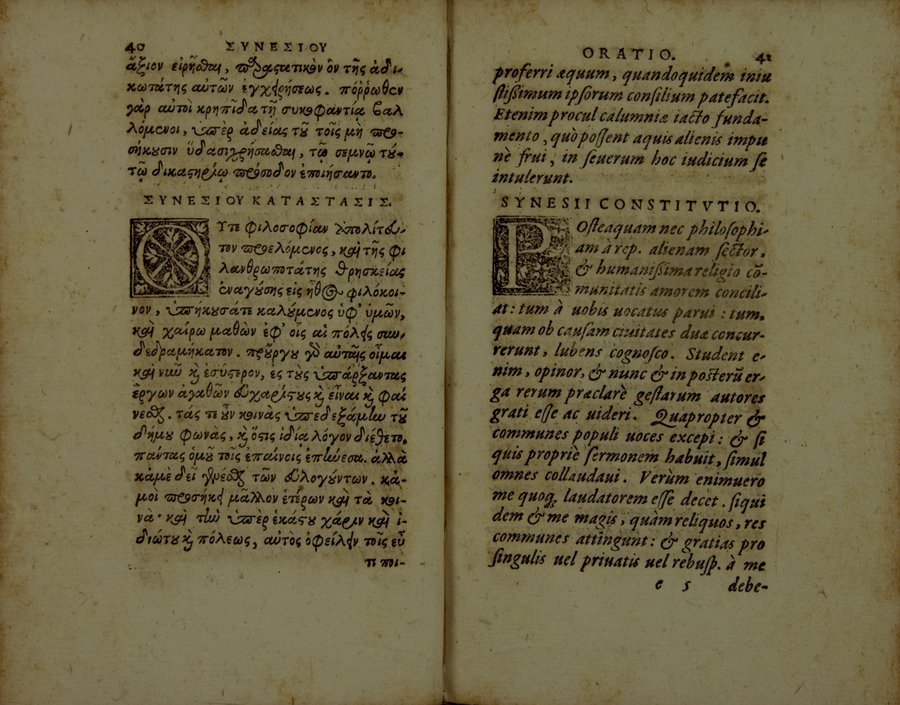 40 ΣΥΝΕΣΙΟΥ
ἄξιον εἰρῆσθαι, παραστατικὸν ὂν τῆς ἀδι-
κωτάτης αὐτῶν ἐγχειρήσεως. πόῤῥωθεν
γὰρ αὐτοὶ κρηπῖδα τῇ συκοφαντίᾳ βαλ
λόμενοι, ὑπὲρ ἀδείας τοῦ τοῖς μὴ προ-
σήκουσιν ὕδασι χρῆσθαι, τῷ σεμνῷ τού-
τῳ δικαστηρίῳ πρόσοδον ἐποιήσαντο.
ΣΥΝΕΣΙΟΥ ΚΑΤΑΣΤΑΣΙΣ.
ΟΥτε φιλοσοφίαν ἀπολίτευ-
τον προελόμενος, καὶ τῆς φι
λανθρωποτάτης θρησκείας
ἐναγούσης εἰς ἦθος φιλόκοι-
νον, ὑπήκουσά τε καλούμενος ὑφ' ὑμῶν,
καὶ χαίρω μαθὼν ἐφ' οἷς αἱ πόλεις συν-
δεδραμήκατον. προὔργου γὰρ αὐταῖς οἶμαι
καὶ νῦν καὶ ἐσύστερον, ἐς τοὺς ὑπάρξαντας
ἔργων ἀγαθῶν εὐχαρίστους καὶ εἶναι καὶ φαί
νεσθαι. τάς τε οὖν κοινὰς ὑπεδεξάμην τοῦ
δήμου φωνὰς, καὶ ὅστις ἰδίᾳ λόγον διέθετο,
πάντας ὁμοῦ τοῖς ἐπαίνοις ἐπῄνεσα. ἀλλὰ
κἀμὲ δεῖ γενέσθαι τῶν εὐλογούντων. κἀ-
μοὶ προσήκει μᾶλλον ἑτέρων καὶ τὰ κοι-
νὰ· καὶ τὴν ὑπὲρ ἑκάστου χάριν καὶ ἰ-
διώτου καὶ πόλεως, αὐτὸς ὀφείλειν τοῖς εὖ
τι ποι-
ORATIO. 41
proferri æquum, quandoquidem iniu
stißimum ipsorum consilium patefacit.
Etenim procul calumniæ iacto funda-
mento, quò possent aquis alienis impu
nè frui, in seuerum hoc iudicium se
intulerunt.
SYNESII CONSTITVTIO.
POsteaquam nec philosophi-
am à rep. alienam sector,
& humanißima religio cō-
munitatis amorem concili-
at: tum à uobis uocatus parui: tum,
quam ob causam ciuitates duæ concur-
rerunt, lubens cognosco. Student e-
nim, opinor, & nunc & in posterū er-
ga rerum præclarè gestarum autores
grati esse ac uideri. Quapropter &
communes populi uoces excepi: & si
quis propriè sermonem habuit, simul
omnes collaudaui. Verùm enimuero
me quoq; laudatorem esse decet. siqui
dem & me magis, quàm reliquos, res
communes attingunt: & gratias pro
singulis uel priuatis uel rebusp. à me
e 5 debe-